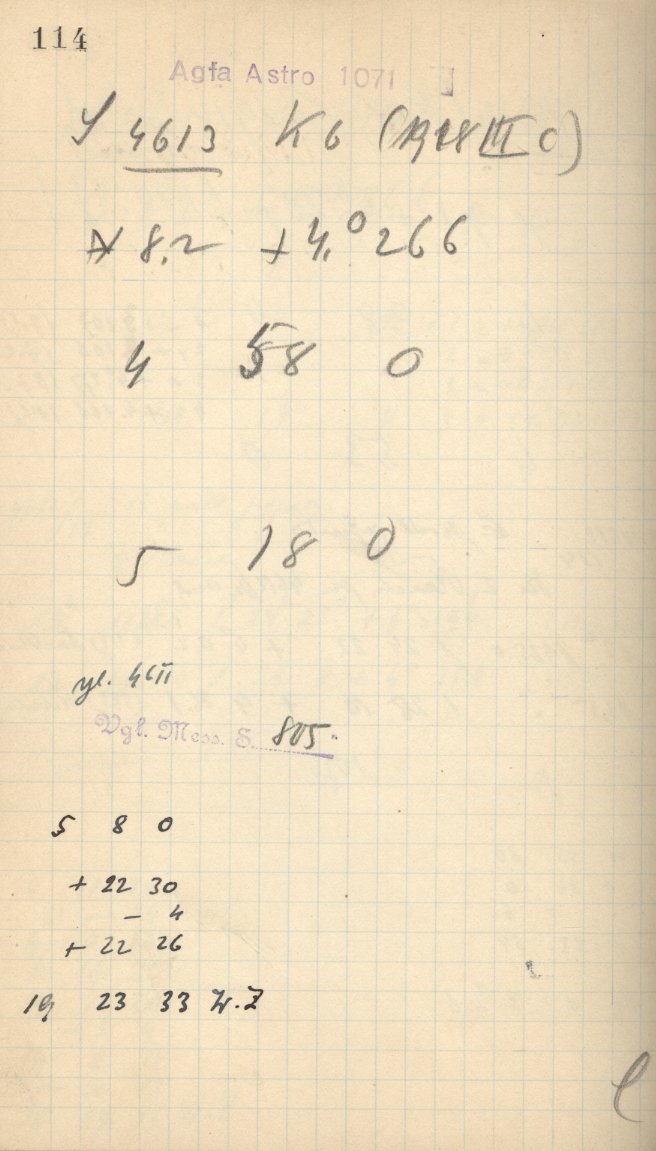 114
Agfa Astro 1071
4613 K6 (1928 III 0)
8.2 +4.°266
4 58 0
5 18 0
gl. 46II
Vgl. Mess. S. 805
5 8 0
+ 22 30
- 4
+ 22 26
19 23 33 W.Z
l